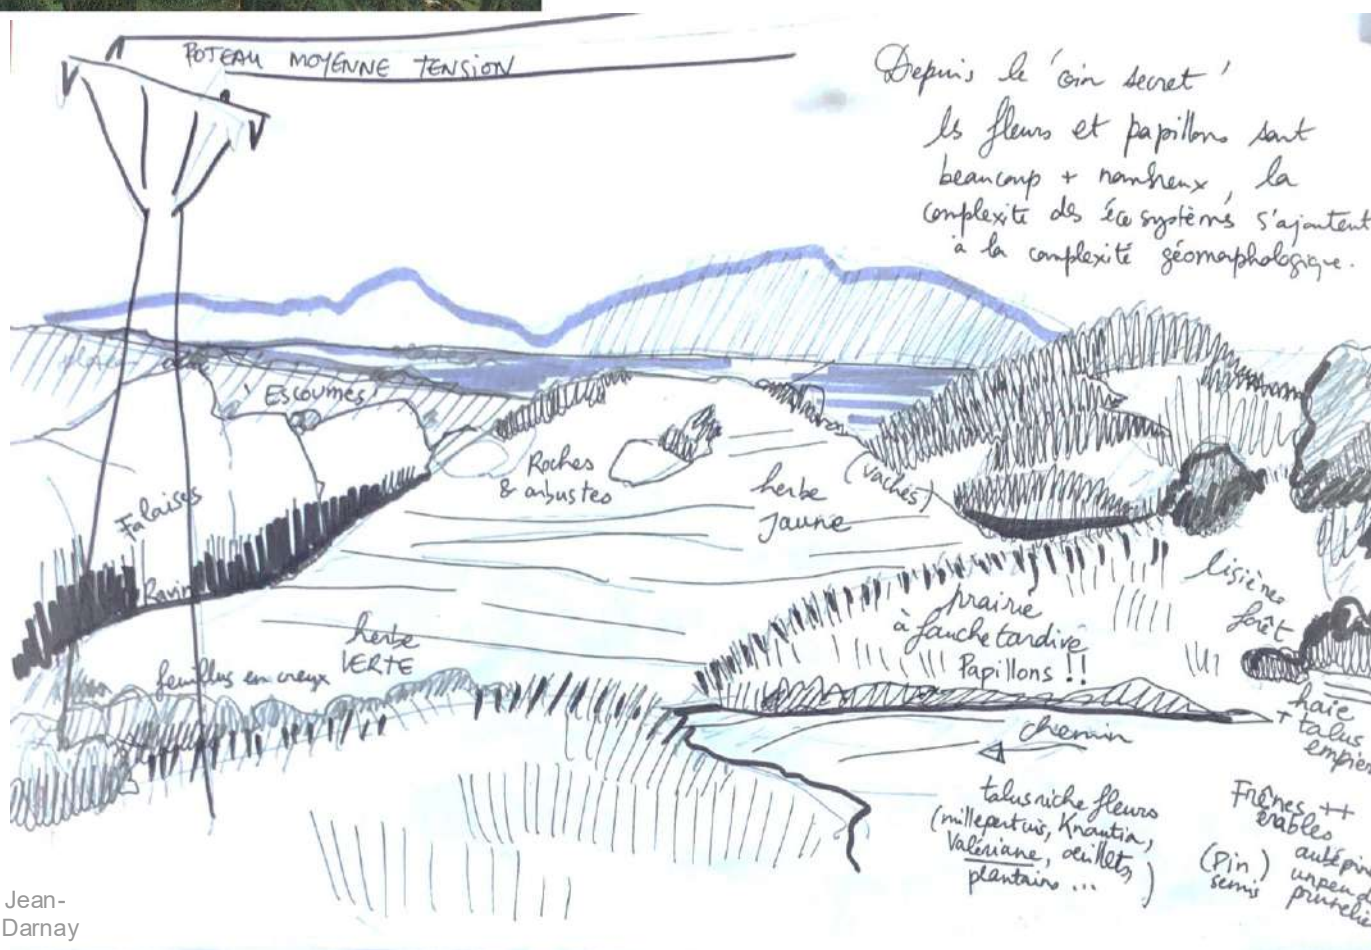 POTEAU MOYENNE TENSION
Depuis le 'coin secret'
ls fleurs et papillons sont
beaucoup + nombreux, la
complexité des écosystèmes s'ajoutent
à la complexité géomorphologique.
'Escoumes'
Falaises
Ravin
Roches
& arbustes
herbe
Jaune
(vaches)
lisières
forêt
prairie
à fauche tardive
Papillons !!
herbe
VERTE
feuillus en creux
chemin
haie
+ talus
empier
talus riche fleurs
(millepertuis, Knautia,
Valériane, œillets,
plantains ... )
Frênes ++
érables
aubépin
(Pin) un peu d
semis prunelie
Jean-
Darnay